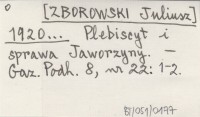 [ZBOROWSKI Juliusz]
1920... Plebiscyt i
sprawa Jaworzyny. —
Gaz. Podh. 8, nr 22: 1-2.
B/051/0177